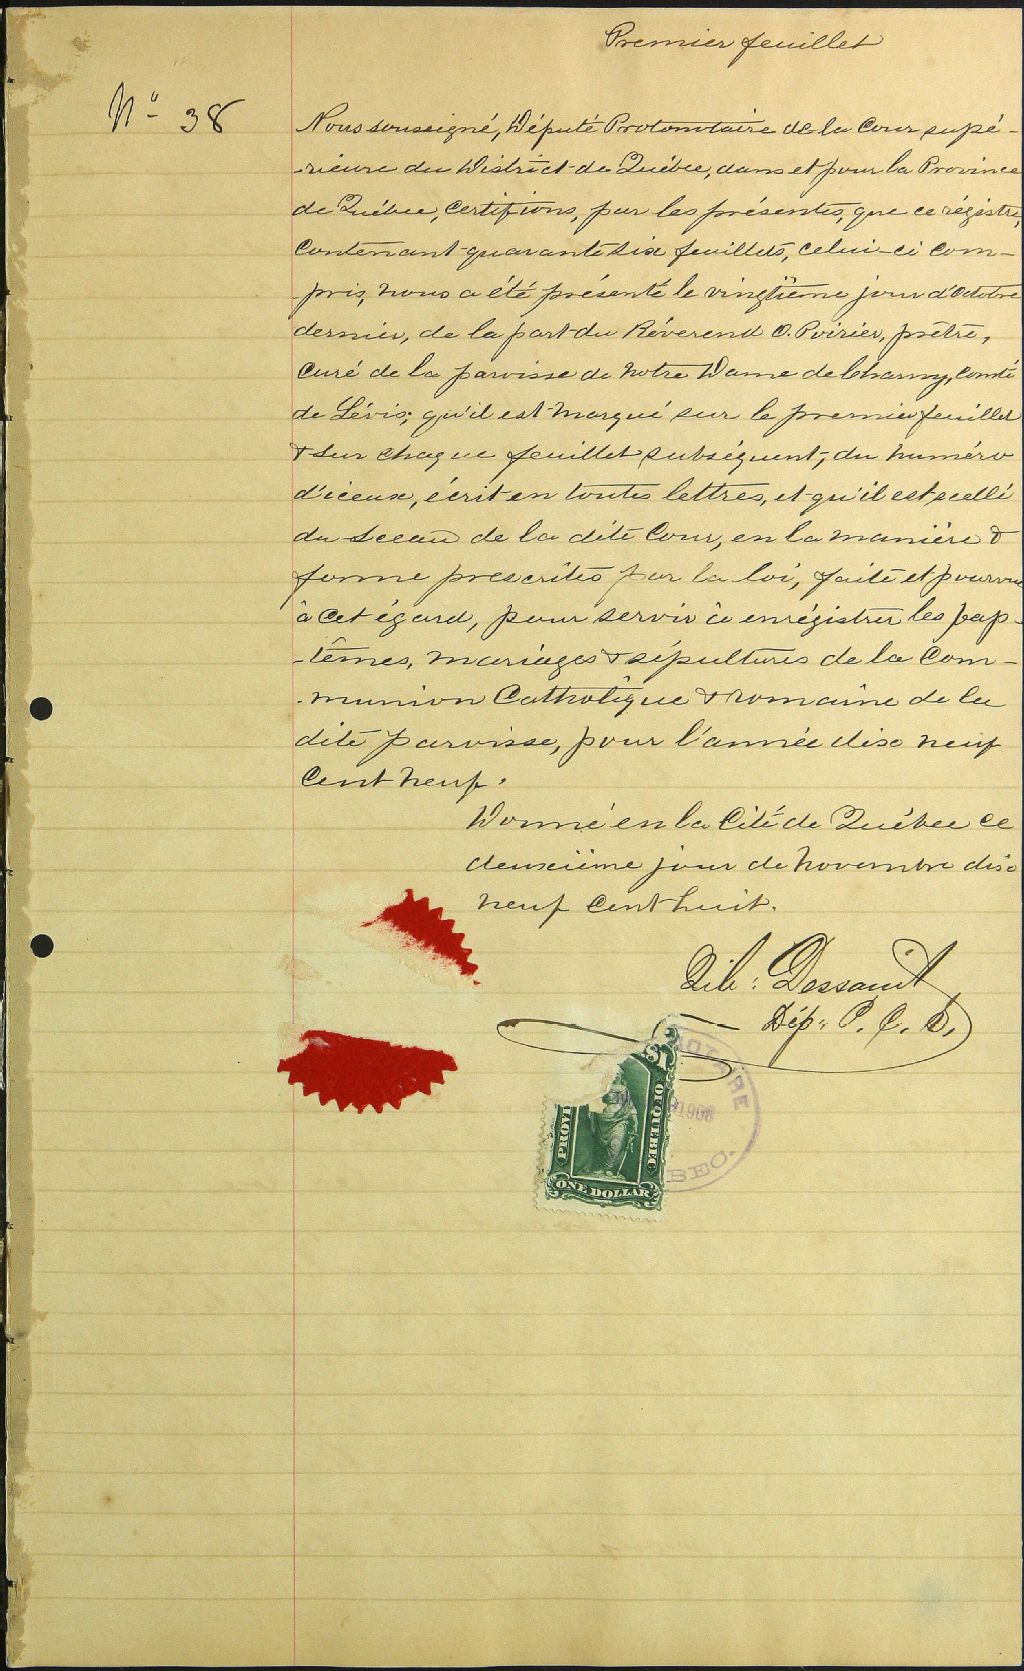 Premier feuillet
No 38
Nous soussigné, Député Protonotaire de la Cour supé-
-rieure du District de Québec, dans et pour la Province
de Québec, certifions, par les présentes, que ce régistre,
contenant quarante six feuillets, celui-ci com-
-pris, nous a été présenté le vingtième jour d'Octobre
dernier, de la part du Révérend O. Poirier, prêtre,
Curé de la paroisse de Notre Dame de Charny, Comté
de Lévis; qu'il est marqué sur le premier feuillet
& sur chaque feuillet subséquent, du numéro
d'iceux, écrit en toutes lettres, et qu'il est scellé
du sceau de la dite Cour, en la manière &
forme prescrites par la loi, faite et pourvue
à cet égard, pour servir à enrégistrer les bap-
-têmes, mariages & sépultures de la Com-
-munion Catholique & romaine de la
dite paroisse, pour l'année dix neuf
cent neuf.
Donné en la Cité de Québec ce
deuxième jour de Novembre dix
neuf cent huit.
Dessault
Dép: P. C. S.
$1
PROVI
OF QUEBEC
ONE DOLLAR
OTAIRE
1908
BEC.